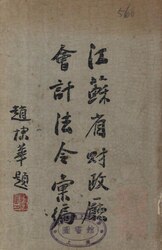 560
江蘇省財政廳
會計法令彙編
趙棣華題
圖書館